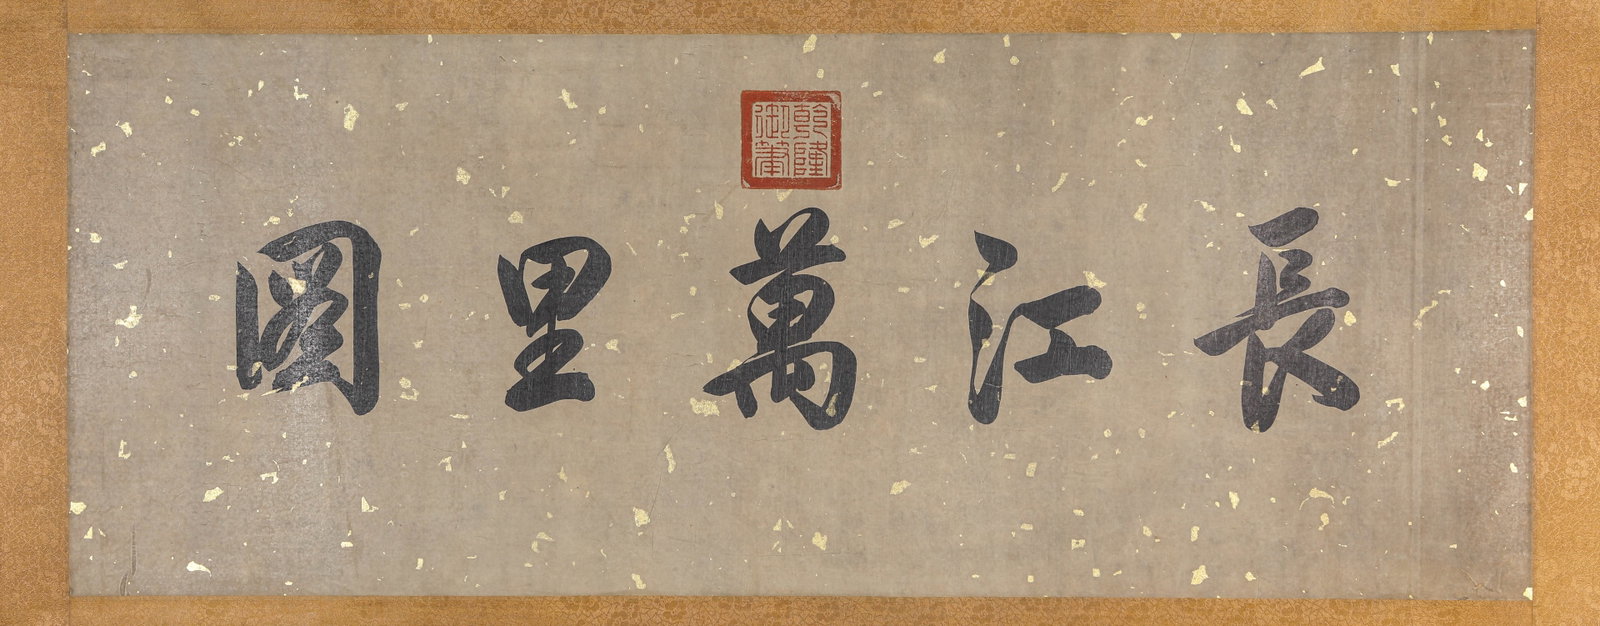 長江萬里圖
乾隆御筆